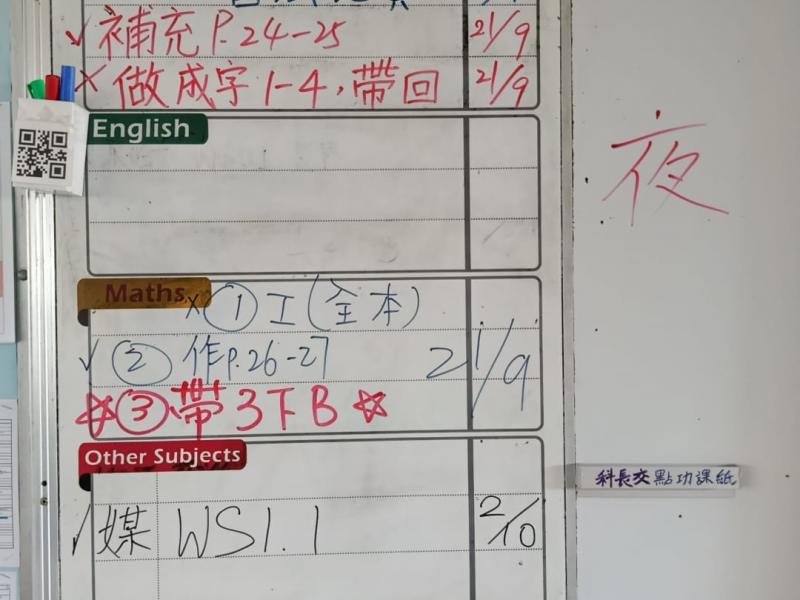 ✓ 補充 P.24-25 21/9
× 做成字 1-4,帶回 21/9
English
夜
Maths
× ① 工(全本)
✓ ② 作P.26-27 21/9
☆③帶3下B☆
Other Subjects
科長交點功課紙
✓ 媒 WS1.1 2/10